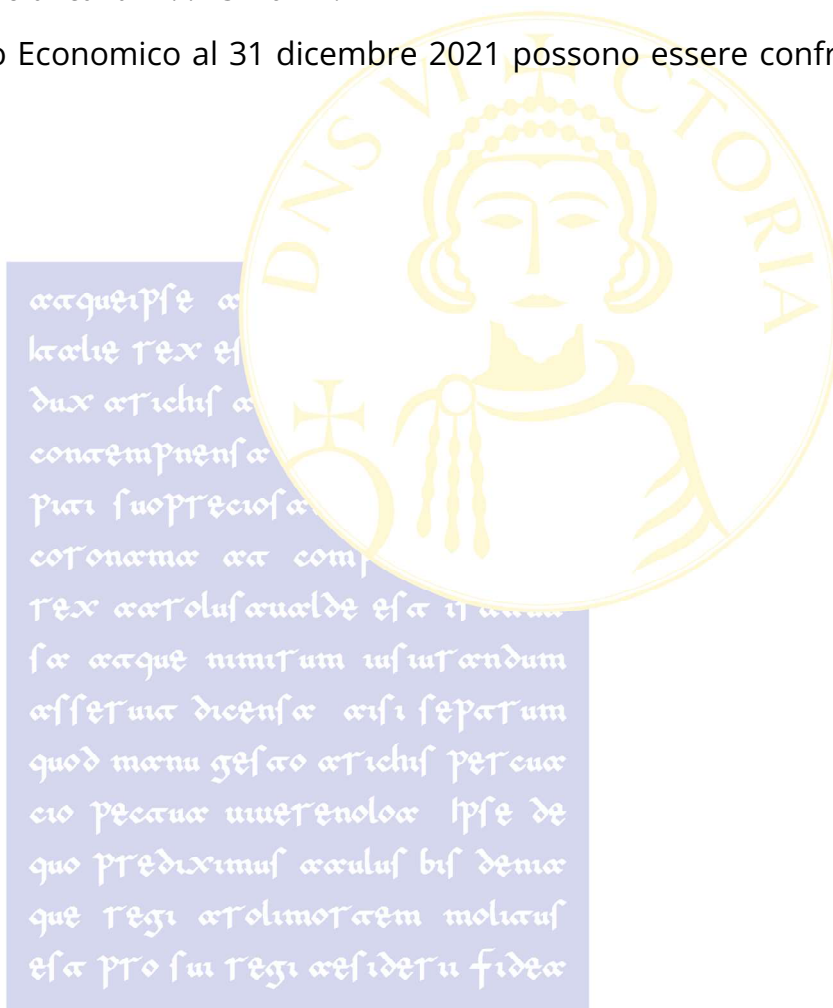 o Economico al 31 dicembre 2021 possono essere confr
DNS VICTORIA
atqueipſe a
Italie rex eſ
dux arichiſ a
contempnenſa
piti ſuoprecioſa
coronama at comp
rex aaroluſaualde eſt
ſa atque nimirum iuſiurandum
aſſeruit dicenſa aiſi ſeparum
quod manu geſto arichiſ percua
cio pectua uiuerenoloa Ipſe de
quo prediximuſ aauluſ biſ denia
que regi arolimortem molituſ
eſt pro ſui regi aeſiderii fidea